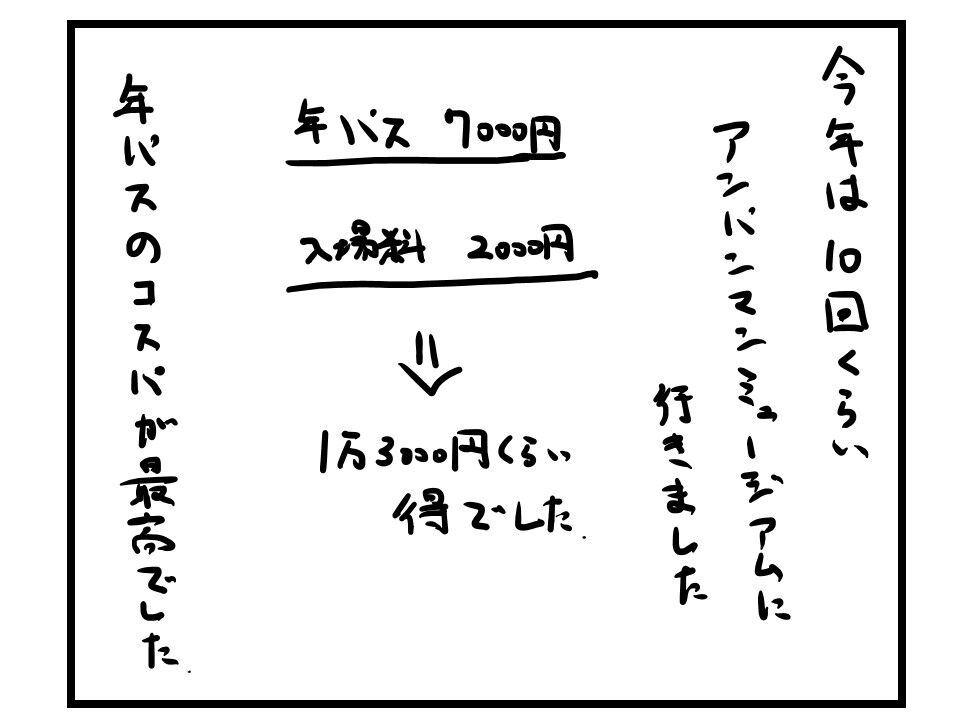 今年は10回くらい
アンパンマンミュージアムに
行きました
年パス 7000円
入場料 2000円
⇓
1万3000円くらい
得でした.
年パスのコスパが最高でした.